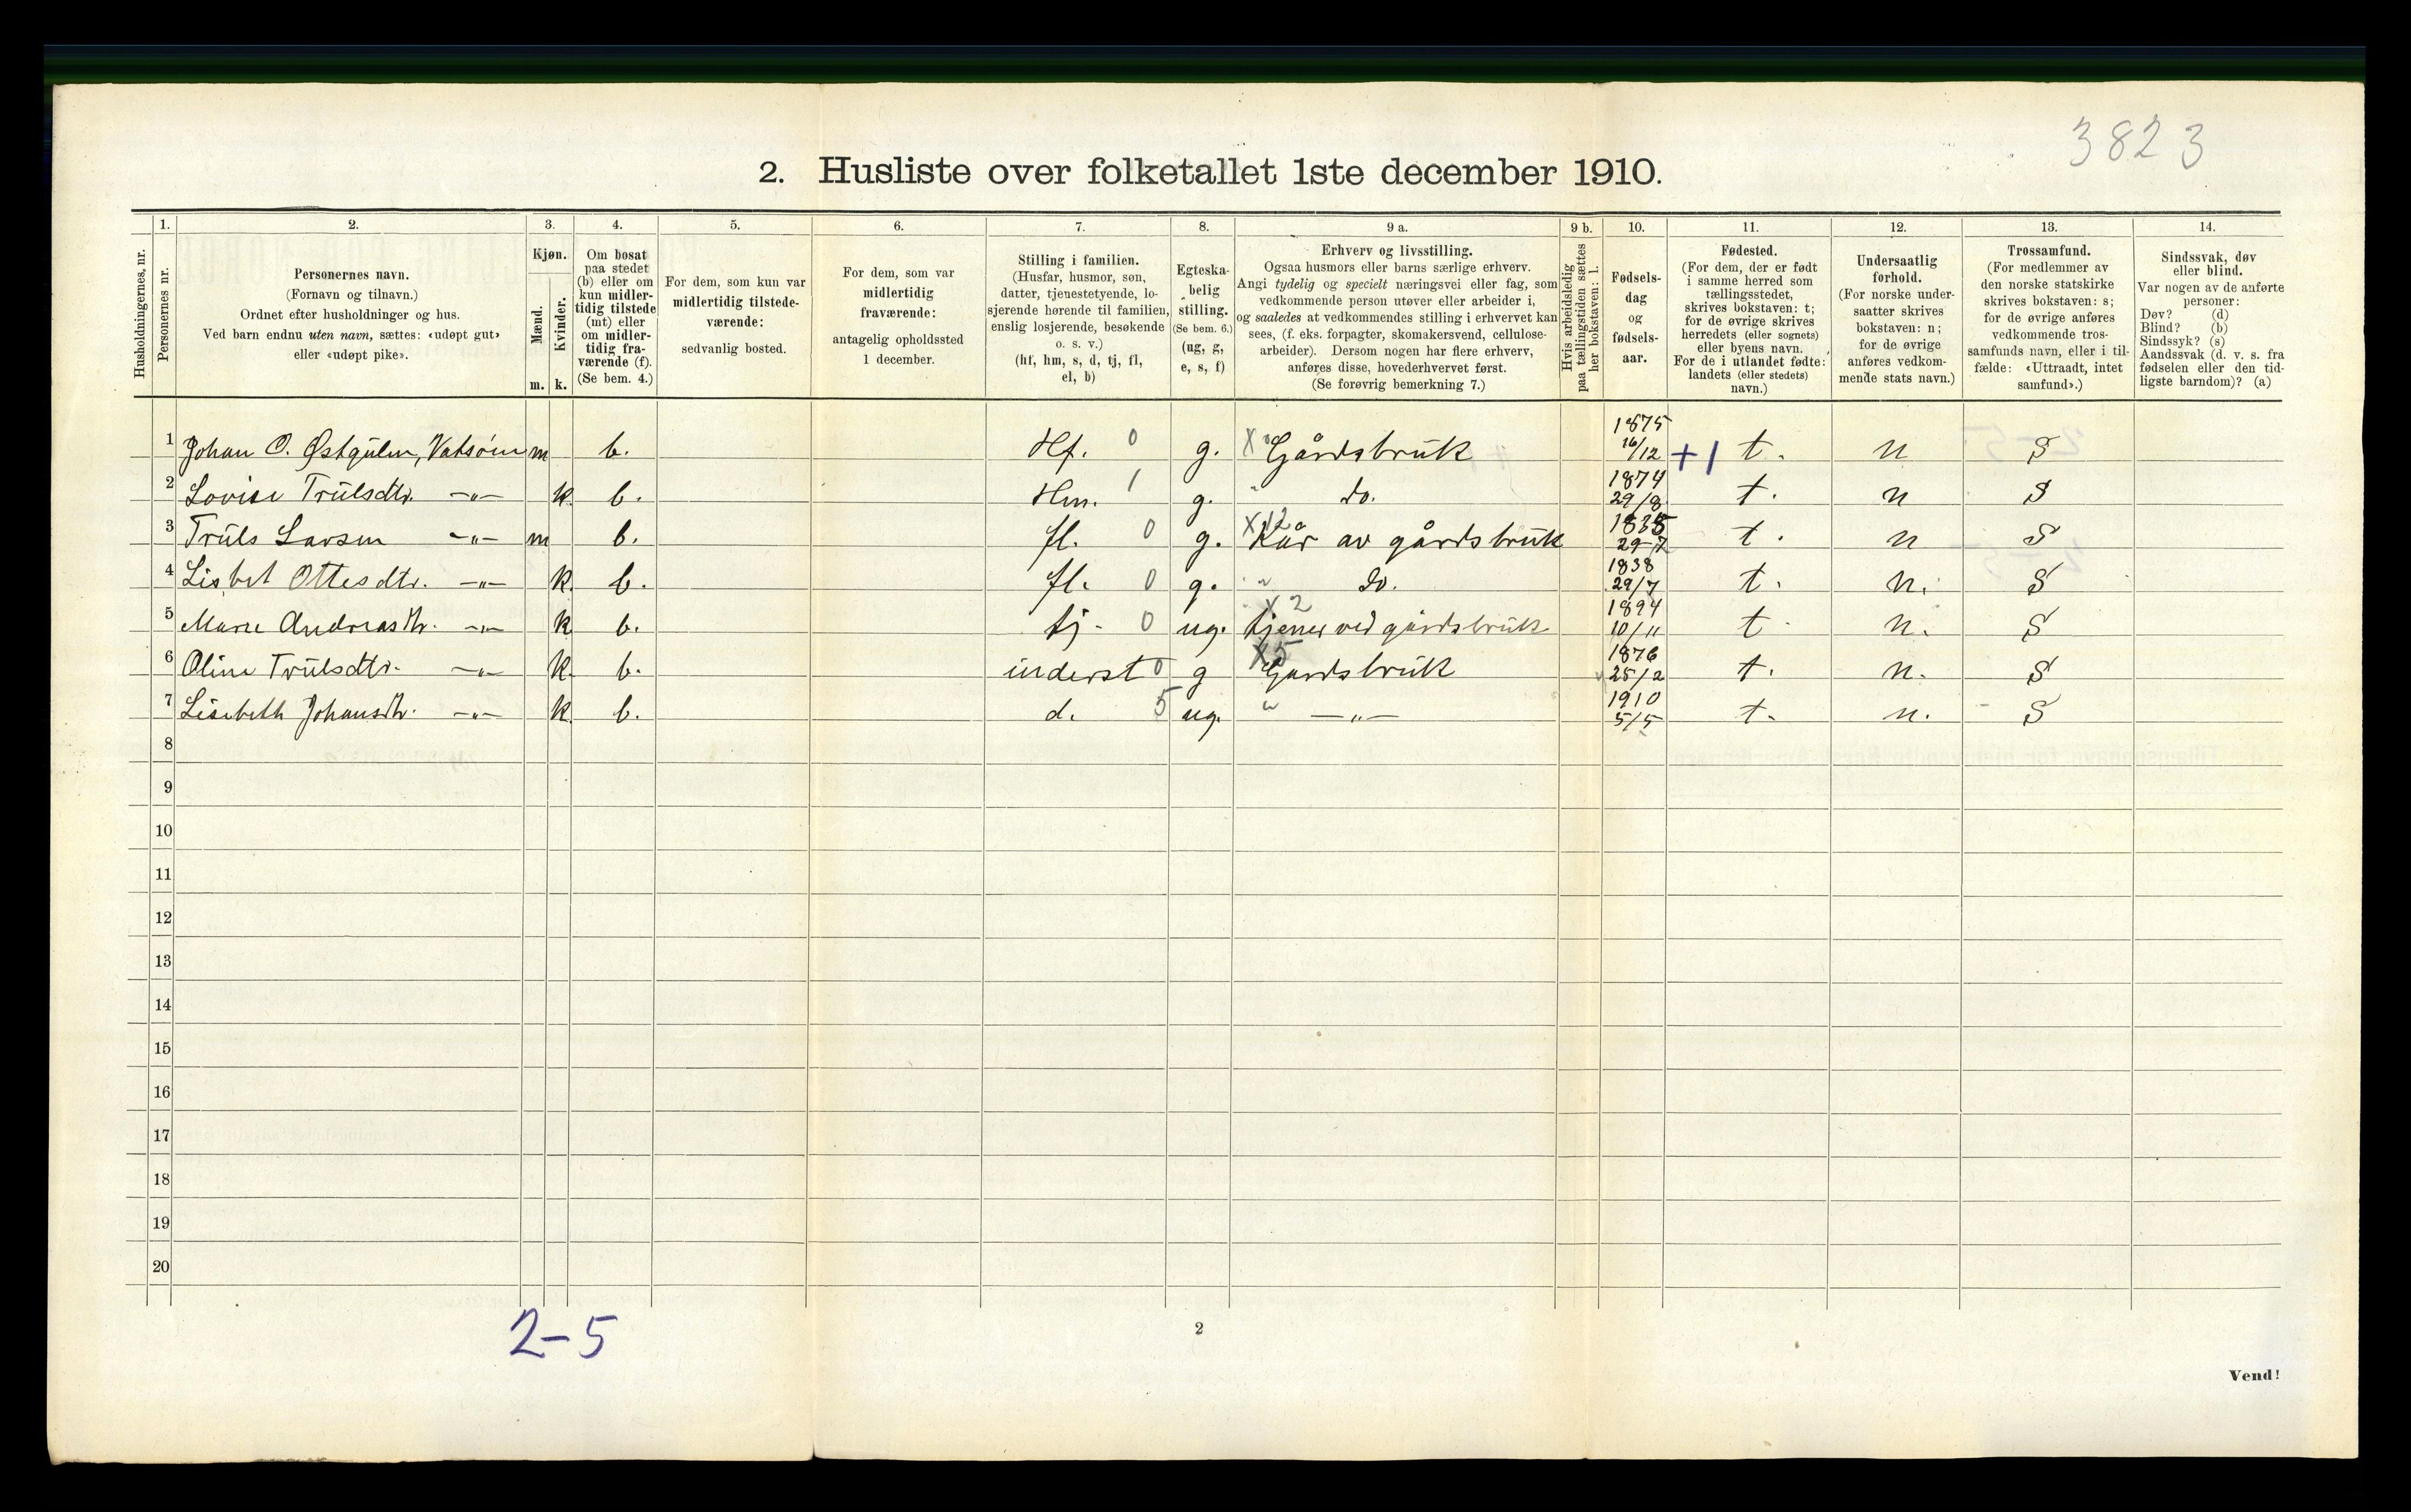 3823
2. Husliste over folketallet 1ste december 1910.
Husholdningernes, nr.
1.
Personernes nr.
2.
Personernes navn.
(Fornavn og tilnavn.)
Ordnet efter husholdninger og hus.
Ved barn endnu uten navn, sættes: «udøpt gut»
eller «udøpt pike».
3.
Kjøn.
Mænd.
Kvinder.
m. k.
4.
Om bosat
paa stedet
(b) eller om
kun midler-
tidig tilstede
(mt) eller
om midler-
tidig fra-
værende (f).
(Se bem. 4.)
5.
For dem, som kun var
midlertidig tilstede-
værende:
sedvanlig bosted.
6.
For dem, som var
midlertidig
fraværende:
antagelig opholdssted
1 december.
7.
Stilling i familien.
(Husfar, husmor, søn,
datter, tjenestetyende, lo-
sjerende hørende til familien,
enslig losjerende, besøkende
o. s. v.)
(hf, hm, s, d, tj, fl,
el, b)
8.
Egteska-
belig
stilling.
(Se bem. 6.)
(ug, g,
e, s, f)
9 a.
Erhverv og livsstilling.
Ogsaa husmors eller barns særlige erhverv.
Angi tydelig og specielt næringsvei eller fag, som
vedkommende person utøver eller arbeider i,
og saaledes at vedkommendes stilling i erhvervet kan
sees, (f. eks. forpagter, skomakersvend, cellulose-
arbeider). Dersom nogen har flere erhverv,
anføres disse, hovederhvervet først.
(Se forøvrig bemerkning 7.)
9 b.
Hvis arbeidsledig
paa tællingstiden sættes
her bokstaven: l.
10.
Fødsels-
dag
og
fødsels-
aar.
11.
Fødested.
(For dem, der er født
i samme herred som
tællingsstedet,
skrives bokstaven: t;
for de øvrige skrives
herredets (eller sognets)
eller byens navn.
For de i utlandet fødte:
landets (eller stedets)
navn.)
12.
Undersaatlig
forhold.
(For norske under-
saatter skrives
bokstaven: n;
for de øvrige
anføres vedkom-
mende stats navn.)
13.
Trossamfund.
(For medlemmer av
den norske statskirke
skrives bokstaven: s;
for de øvrige anføres
vedkommende tros-
samfunds navn, eller i til-
fælde: «Uttraadt, intet
samfund».)
14.
Sindssvak, døv
eller blind.
Var nogen av de anførte
personer:
Døv? (d)
Blind? (b)
Sindssyk? (s)
Aandssvak (d. v. s. fra
fødselen eller den tid-
ligste barndom)? (a)
1 Johan O. m b. Hf. 0 g. X Gårdsbruk 1875 16/12 +1 t. n S
2 Lovise Trülsdtr. -"- k b. Hm. 1 g. " do. 1874 29/8 t. n S
3 Trüls Larsen -"- m b. fl. 0 g. X12 Kår av gårdsbrük 1835 29-7 t. n S
4 Lisbet Ottesdtr. -"- k. b. fl. 0 g. " do. 1838 29/7 t. n. S
5 Marie -"- k b. tj. 0 ug. X2 tjener ved gårdsbrük 1894 10/11 t n. S
6 Oline Trülsdtr. -"- k. b. inderst 0 g X5 Gårdsbrük 1876 25/2 t. n. S
7 Lisebeth -"- k. b. d. 5 ug. " -"- 1910 5/5 t. n. S
8
9
10
11
12
13
14
15
16
17
18
19
20
2-5
2
Vend!